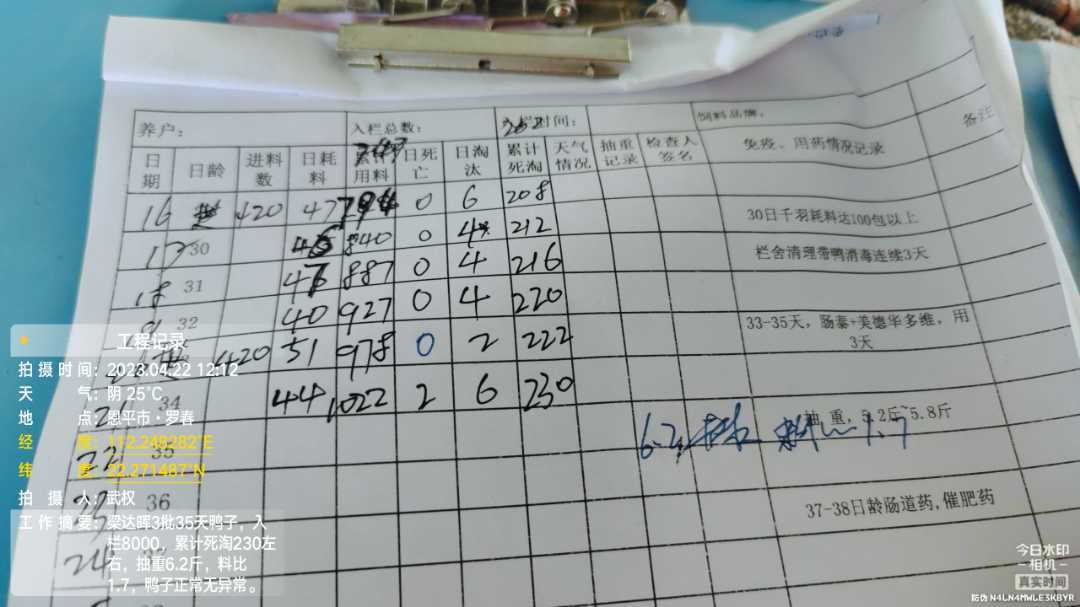 养户： 入栏总数： 时间： 饲料品牌： 备注
日期 日龄 进料数 日耗料 用料 日死亡 日淘汰 累计死淘 天气情况 抽重记录 检查人签名 免疫、用药情况记录
16 420 47 0 6 208
30日千羽耗料达100包以上
17 30 840 0 4 212
栏舍清理带鸭消毒连续3天
18 31 887 0 4 216
32 40 927 0 4 220
33-35天，肠泰+美德华多维，用3天
420 51 978 0 2 222
34 44 1022 2 6 230
抽重，5.2斤~5.8斤
6.2斤 料 1.7
22 35
36
37-38日龄肠道药,催肥药
24
工程记录
拍摄时间：2023.04.22 12:12
天气：阴 25℃
地点：恩平市·罗春
经度：112.248282°E
纬度：22.271487°N
拍摄人：武权
工作摘要：梁达晖3批35天鸭子，入
栏8000，累计死淘230左
右，抽重6.2斤，料比
1.7，鸭子正常无异常。
今日水印
相机
真实时间
防伪 N4LN4MWLE3KBYR